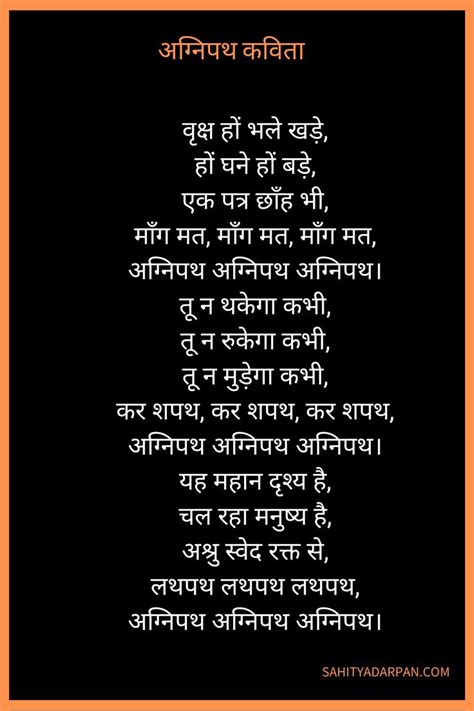 अग्निपथ कविता
वृक्ष हों भले खड़े,
हों घने हों बड़े,
एक पत्र छाँह भी,
माँग मत, माँग मत, माँग मत,
अग्निपथ अग्निपथ अग्निपथ।
तू न थकेगा कभी,
तू न रुकेगा कभी,
तू न मुड़ेगा कभी,
कर शपथ, कर शपथ, कर शपथ,
अग्निपथ अग्निपथ अग्निपथ।
यह महान दृश्य है,
चल रहा मनुष्य है,
अश्रु स्वेद रक्त से,
लथपथ लथपथ लथपथ,
अग्निपथ अग्निपथ अग्निपथ।
SAHITYADARPAN.COM